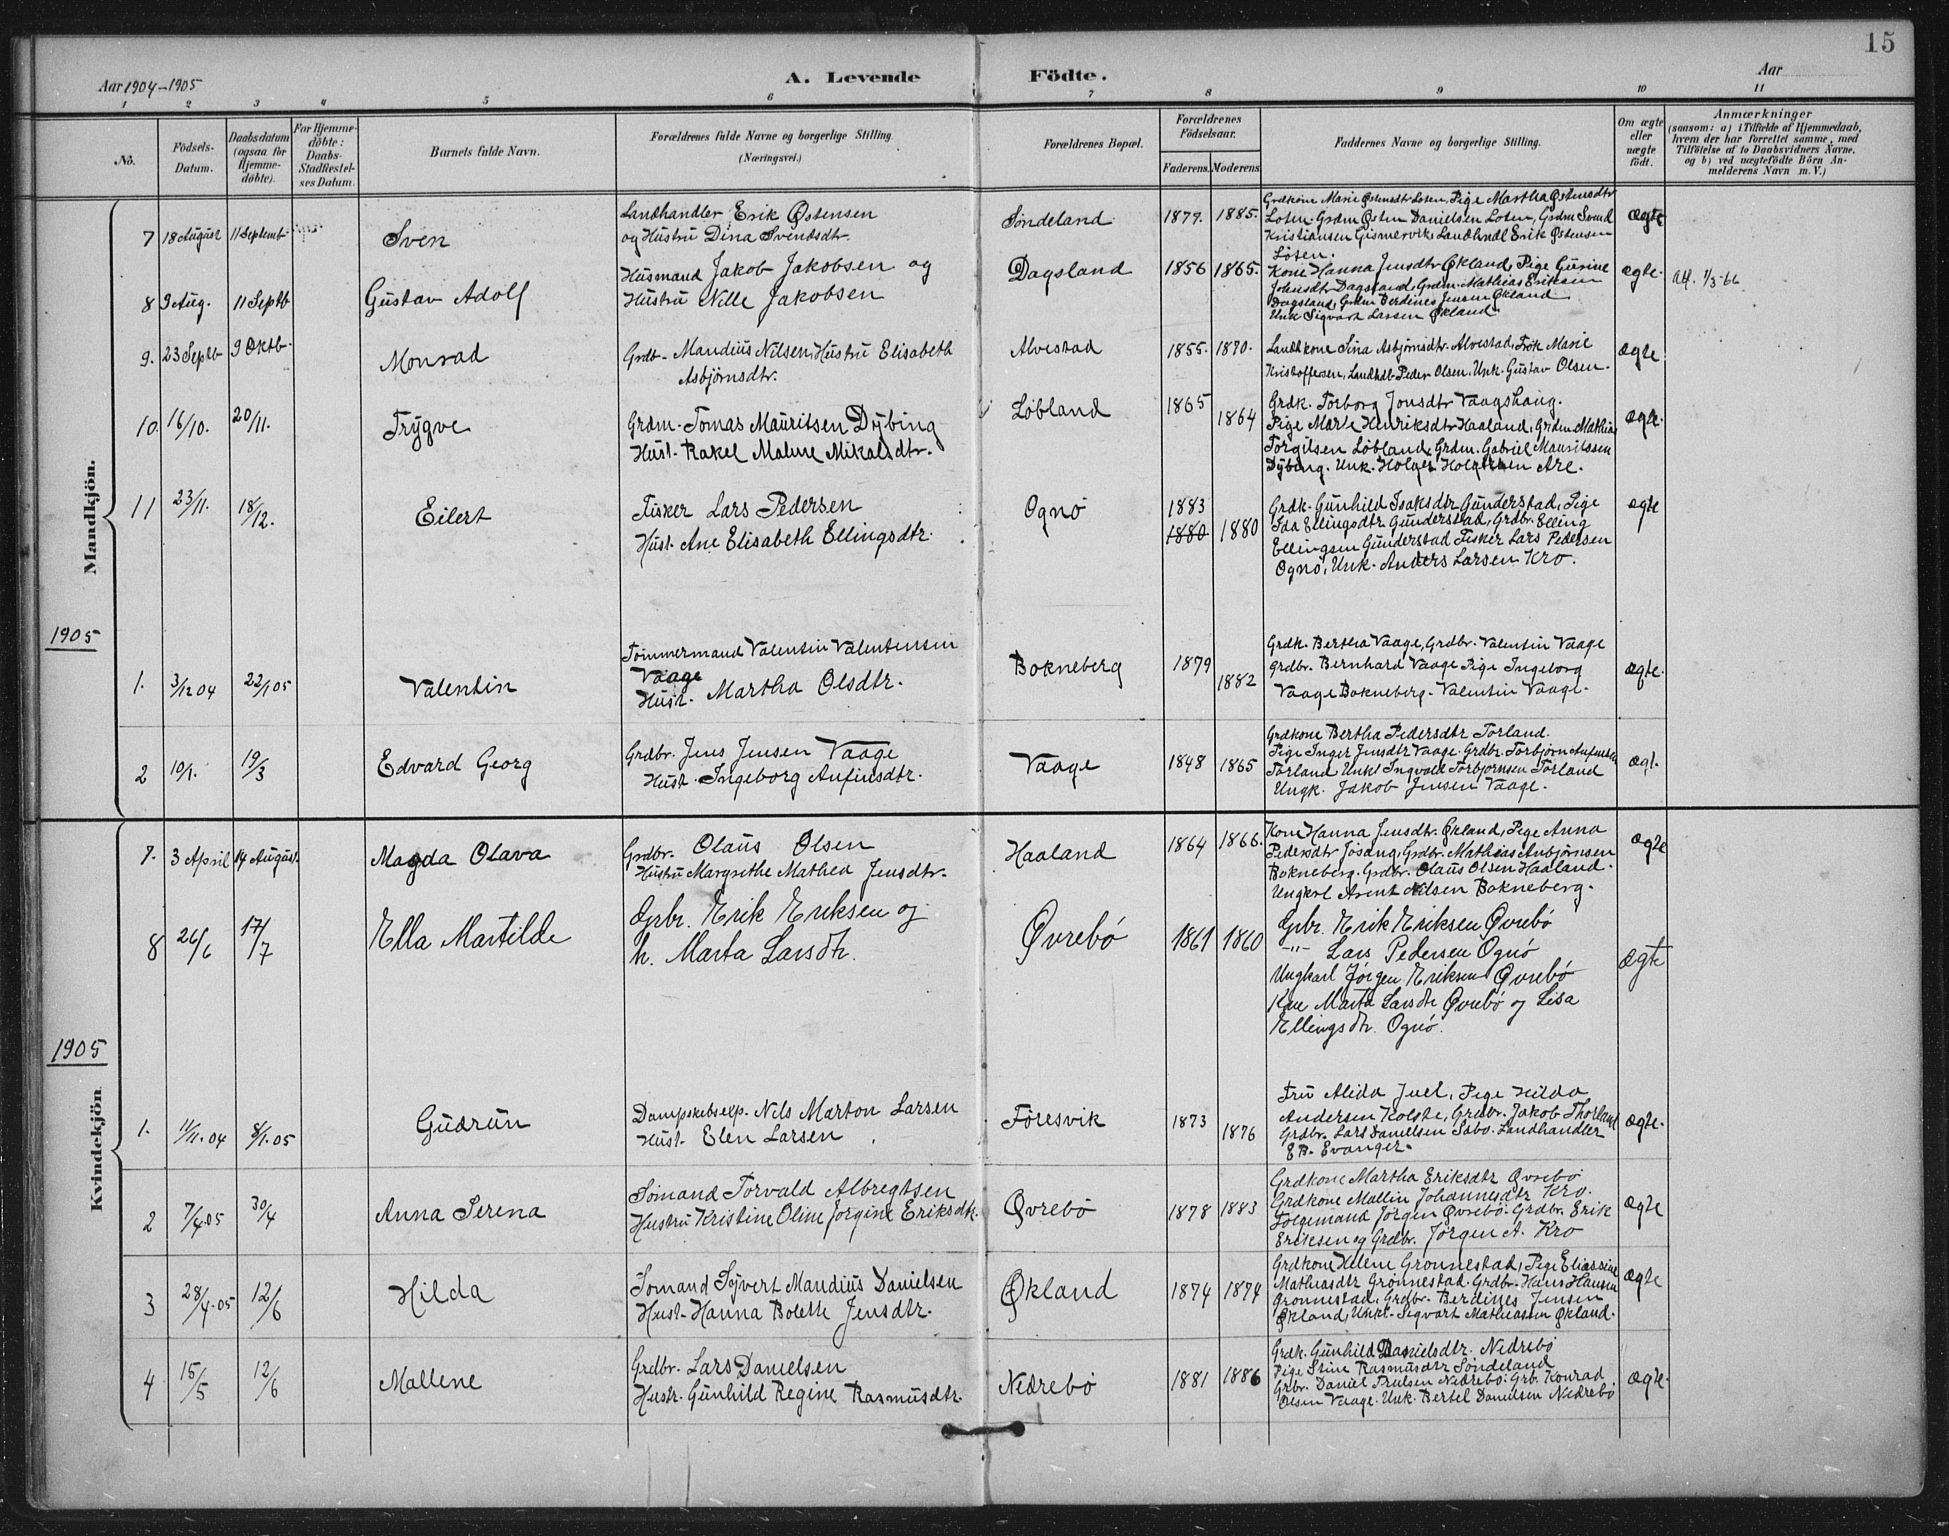 15
Aar 1904-1905
A. Levende Födte.
Aar
1 2 3 4 5 6 7 8 9 10 11
No.
Födsels-Datum.
Daabsdatum (ogsaa for Hjemme-döbte).
For Hjemme-döbte: Daabs-Stadfæstel-ses Datum.
Barnets fulde Navn.
Forældrenes fulde Navne og borgerlige Stilling.
(Næringsvei.)
Forældrenes Bopæl.
Forældrenes Födselsaar.
Faderens. Moderens
Faddernes Navne og borgerlige Stilling.
Om ægte eller uægte födt.
Anmærkninger
(saasom: a) i Tilfælde af Hjemmedaab, hvem der har forrettet samme, med Tilföielse af to Daabsvidners Navne, og b) ved uægtefödte Börn An-melderens Navn m. V.)
Mandkjön.
7 18 August 11 Septemb. Sven
Landhandler Erik Østensen
og Hustru Dina Svendsdtr.
Søndeland 1879. 1885.
Grdkone Marie Østensdtr Loten, Pige Martha Østensdtr
Loten. Grdm Østen Danielsen Loten, Grdm Svend
Kristiansen Gismervik, Landhndl Erik Østensen
Løten.
ægte
8 9 Aug. 11 Septb Gustav Adolf
Husmand Jakob Jakobsen og
Hustru Nille Jakobsen
Dagsland 1856 1865.
Kone Hanna Jensdtr Økland, Pige Gurine
Johnsdtr Dagsland, Grdm. Mathias Eriksen
Dagsland, Grdm Berdines Jensen Økland
Unk Sigvart Larsen Økland.
ægte. att. 1/3-66
9. 23 Septb 9 Oktb. Monrad
Grdb. Mandius Nilsen, Hustru Elisabeth
Asbjørnsdtr.
Alvestad 1855. 1870.
Landhkone Sina Asbjørnsdtr. Alvestad, Frøk Marie
Kristoffersen, Landhdb Peder Olsen, Unk. Gustav Olsen.
ægte
10 16/10. 20/11. Trygve
Grdm. Tomas Mauritsen Dybing
Hust. Rakel Malene Mikalsdtr.
Løbland 1865 1864
Grdk. Torborg Jonsdtr Vaagshaug.
Pige Marte Henriksdtr Haaland, Grdm. Mathias
Torgilsen Løbland, Grdm. Gabriel Mauritssen
Dybing. Unk. Holger Holgersen Are.
ægte.
11 23/11. 18/12. Eilert
Fisker Lars Pedersen
Hust. Ane Elisabeth Ellingsdtr.
Ognø 1883
1880 1880
Grdk. Gunhild Isaksdtr Gunderstad, Pige
Ida Ellingsdtr Gunderstad, Grdbr. Elling
Ellingsen Gunderstad Fisker Lars Pedersen
Ognø, Unk. Anders Larsen Kro.
ægte
1905
1. 3/12 04 22/1 05 Valentin
Tømmermand Valentin Valentinsen
Vaage
Hust. Martha Olsdtr.
Bokneberg 1879 1882
Grdk. Bertha Vaage, Grdbr. Valentin Vaage
Grdbr. Bernhard Vaage Pige Ingeborg
Vaage Bokneberg. Valentin Vaage.
ægte.
2 10/1. 19/3 Edvard Georg
Grdbr. Jens Jensen Vaage
Hust. Ingeborg Anfinsdtr.
Vaage 1848 1865
Grdkone Bertha Pedersdtr Torland.
Pige Inger Jensdtr Vaage. Grdbr. Torbjørn Anfinsen
Torland Unkl Ingvald Torbjørnsen Torland
Ungk. Jakob Jensen Vaage.
ægt.
Kvindekjön
7. 3 April 14 August. Magda Olava
Grdbr. Olaus Olsen
Hustru Margrethe Mathea Jensdtr.
Haaland 1864 1866.
Kone Hanna Jensdtr. Økland, Pige Anna
Pedersdtr Jøsang, Grdbr. Mathias Anbjørnsen
Bokneberg. Grdbr. Olaus Olsen Haaland.
Ungkrl Arent Nilsen Bokneberg.
ægte
8 26/6 17/7 Ella Martilde
Grbr. Erik Eriksen og
h. Marta Larsdtr.
Øvrebö 1861 1860
Grbr. Erik Eriksen Øvrebö
-"- Lars Pedersen Ognø
Ungkarl Jørgen Eriksen Øvrebö
Kone Marta Larsdtr Øvrebö og Lisa
Ellingsdtr. Ognø.
ægte
1905
1. 11/11.04 8/1.05 Gudrun
Dampskibsexp. Nils Marton Larsen
Hust. Elen Larsen
Føresvik 1873 1876
Fru Alida Juel, Pige Hilda
Andersen Holste, Grdbr. Jakob Thorland
Grdbr. Lars Danielsen Sabo. Landhandler
E B. Evanger.
ægte.
2 7/4.05 30/4 Anna Serena
Sømand Torvald Albregtsen
Hustru Kristine Oline Jørgine Eriksdtr.
Øvrebø 1878 1883
Grdkone Martha Eriksdtr Øvrebö
Grdkone Mallin Johannesdtr Kro.
Følgemand Jørgen Øvrebø. Grdbr. Erik
Eriksen og Grdbr. Jørgen A. Kro
ægte
3 28/4.05 12/6 Hilda
Sømand Syvert Mandius Danielsen
Hust. Hanna Bolette Jensdtr.
Økland 1874 1874
Grdkone Helene Grønnestad, Pige Eliassine
Mathiasdtr Grønnestad. Grdbr. Hans Hansen
Grønnestad, Grdbr. Berdines Jensen
Økland, Unkl. Sigvart Mathiassen Økland.
ægte
4 15/5 12/6 Mallene
Grdbr. Lars Danielsen
Hustr. Gunhild Regine Rasmusdtr.
Nedrebø 1881 1886
Grdk. Gunhild Danielsdtr. Nedrebø
Pige Stine Rasmusdtr Søndeland
Grbr. Daniel Trulsen Nedrebø. Grb. Konrad
Olsen Vaage. Unk. Bertel Danielsen Nedrebø
ægte.